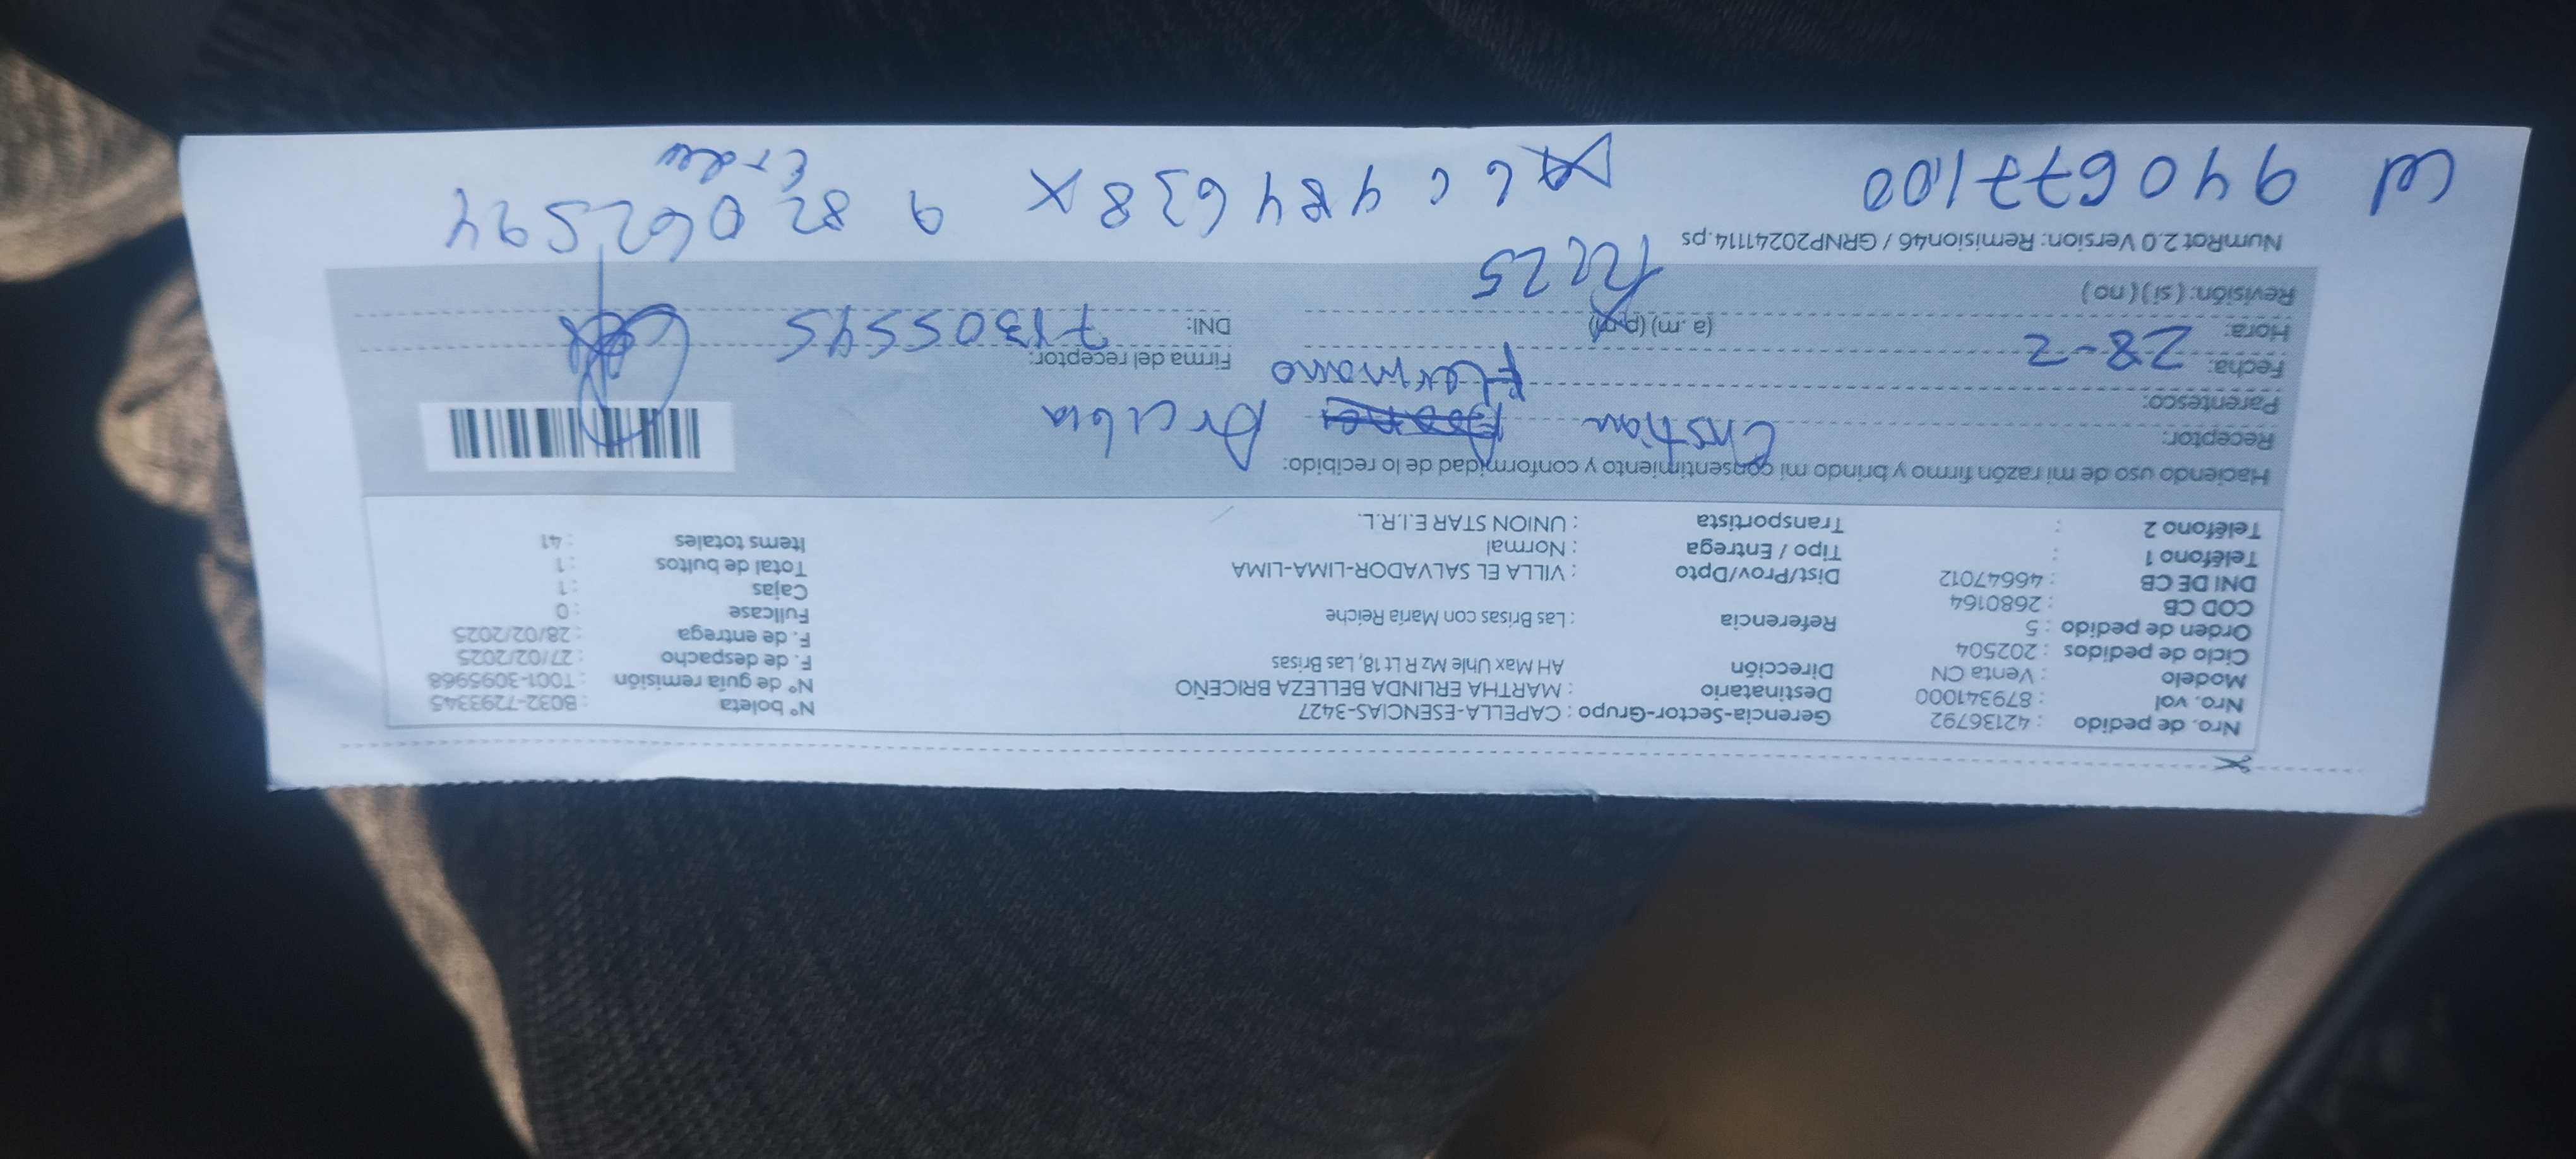 Nro. de pedido : 42136792 Gerencia-Sector-Grupo : CAPELLA-ESENCIAS-3427 N° boleta : B032-7293345
Nro. vol : 879341000 Destinatario : MARTHA ERLINDA BELLEZA BRICEÑO N° de guía remisión : T001-3095968
Modelo : Venta CN Dirección AH Max Uhle Mz R Lt 18, Las Brisas F. de despacho : 27/02/2025
Ciclo de pedidos : 202504 F. de entrega : 28/02/2025
Orden de pedido : 5 Referencia : Las Brisas con María Reiche Fullcase : 0
COD CB : 2680164 Cajas : 1
DNI DE CB : 46647012 Dist/Prov/Dpto : VILLA EL SALVADOR-LIMA-LIMA Total de bultos : 1
Teléfono 1 : Tipo / Entrega : Normal Items totales : 41
Teléfono 2 : Transportista : UNION STAR E.I.R.L.
Haciendo uso de mi razón firmo y brindo mi consentimiento y conformidad de lo recibido:
Receptor: Cristian
Parentesco: Hermano
Fecha: 28-2 Firma del receptor:
Hora: (a .m) (p.m) DNI: 71305545
Revisión: ( si ) ( no )
NumRot 2.0 Version: Remision46 / GRNP20241114.ps